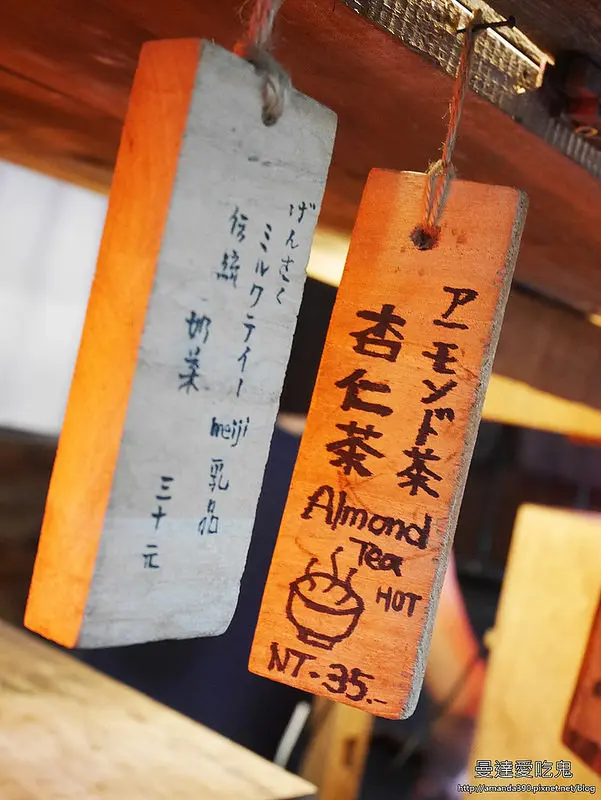 げんさく
ミルクティー meiji 乳品
伝統 奶茶
三十元
アーモンド茶
杏仁茶
Almond
Tea
HOT
NT.35.-
曼達愛吃鬼
http://amanda390.pixnet.net/blog